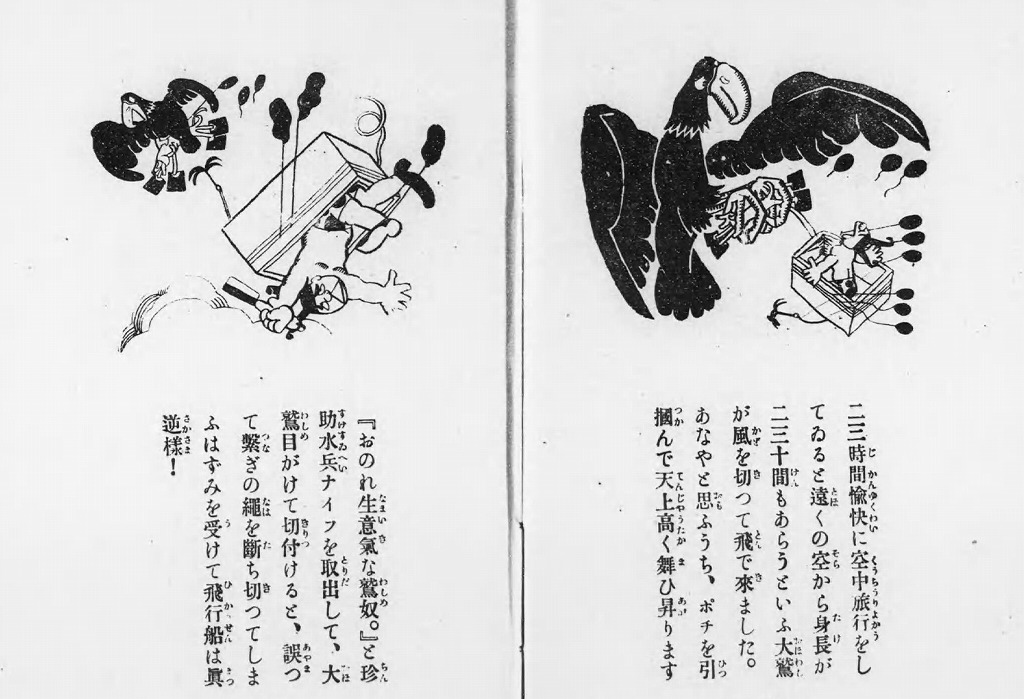 二三時間愉快に空中旅行をし
てゐると遠くの空から身長が
二三十間もあらうといふ大鷲
が風を切つて飛で來ました。
あなやと思ふうち、ポチを引
摑んで天上高く舞ひ昇ります
『おのれ生意氣な鷲奴。』と珍
助水兵ナイフを取出して、大
鷲目がけて切付けると、誤つ
て繫ぎの繩を斷ち切つてしま
ふはずみを受けて飛行船は眞
逆樣！